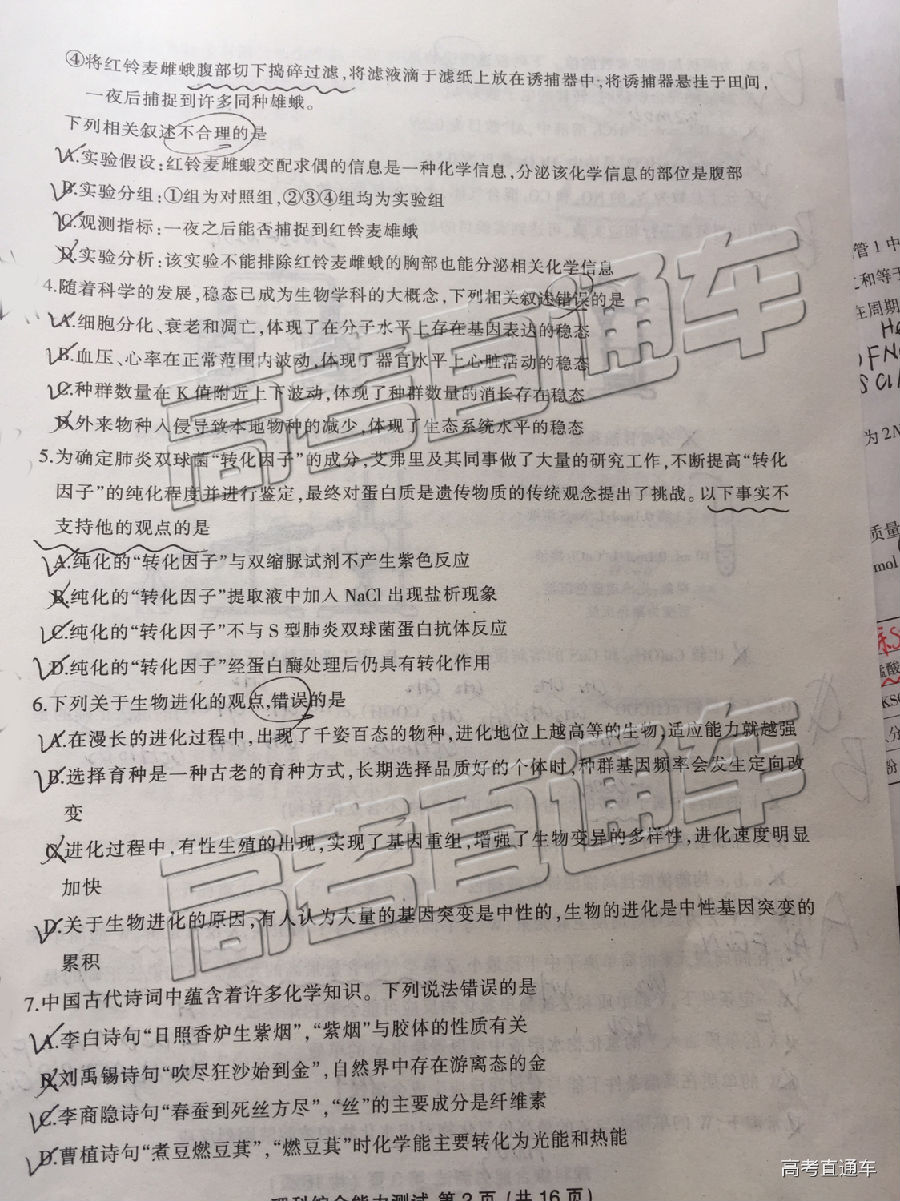 ④将红铃麦雌蛾腹部切下捣碎过滤,将滤液滴于滤纸上放在诱捕器中;将诱捕器悬挂于田间,
一夜后捕捉到许多同种雄蛾。
下列相关叙述不合理的是
A.实验假设:红铃麦雌蛾交配求偶的信息是一种化学信息,分泌该化学信息的部位是腹部
B.实验分组:①组为对照组,②③④组均为实验组
C.观测指标:一夜之后能否捕捉到红铃麦雄蛾
D.实验分析:该实验不能排除红铃麦雌蛾的胸部也能分泌相关化学信息
4.随着科学的发展,稳态已成为生物学科的大概念,下列相关叙述错误的是
A.细胞分化、衰老和凋亡,体现了在分子水平上存在基因表达的稳态
B.血压、心率在正常范围内波动,体现了器官水平上心脏活动的稳态
C.种群数量在K值附近上下波动,体现了种群数量的消长存在稳态
D.外来物种入侵导致本地物种的减少,体现了生态系统水平的稳态
5.为确定肺炎双球菌“转化因子”的成分,艾弗里及其同事做了大量的研究工作,不断提高“转化
因子”的纯化程度并进行鉴定,最终对蛋白质是遗传物质的传统观念提出了挑战。以下事实不
支持他的观点的是
A.纯化的“转化因子”与双缩脲试剂不产生紫色反应
B.纯化的“转化因子”提取液中加入NaCl出现盐析现象
C.纯化的“转化因子”不与S型肺炎双球菌蛋白抗体反应
D.纯化的“转化因子”经蛋白酶处理后仍具有转化作用
6.下列关于生物进化的观点,错误的是
A.在漫长的进化过程中,出现了千姿百态的物种,进化地位上越高等的生物,适应能力就越强
B.选择育种是一种古老的育种方式,长期选择品质好的个体时,种群基因频率会发生定向改
变
C.进化过程中,有性生殖的出现,实现了基因重组,增强了生物变异的多样性,进化速度明显
加快
D.关于生物进化的原因,有人认为大量的基因突变是中性的,生物的进化是中性基因突变的
累积
7.中国古代诗词中蕴含着许多化学知识。下列说法错误的是
A.李白诗句“日照香炉生紫烟”,“紫烟”与胶体的性质有关
B.刘禹锡诗句“吹尽狂沙始到金”,自然界中存在游离态的金
C.李商隐诗句“春蚕到死丝方尽”,“丝”的主要成分是纤维素
D.曹植诗句“煮豆燃豆萁”,“燃豆萁”时化学能主要转化为光能和热能
理科综合能力测试 第2页(共16页)
高考直通车
高考直通车
高考直通车
管1中
和等于
主周期
为2N
质量
mol